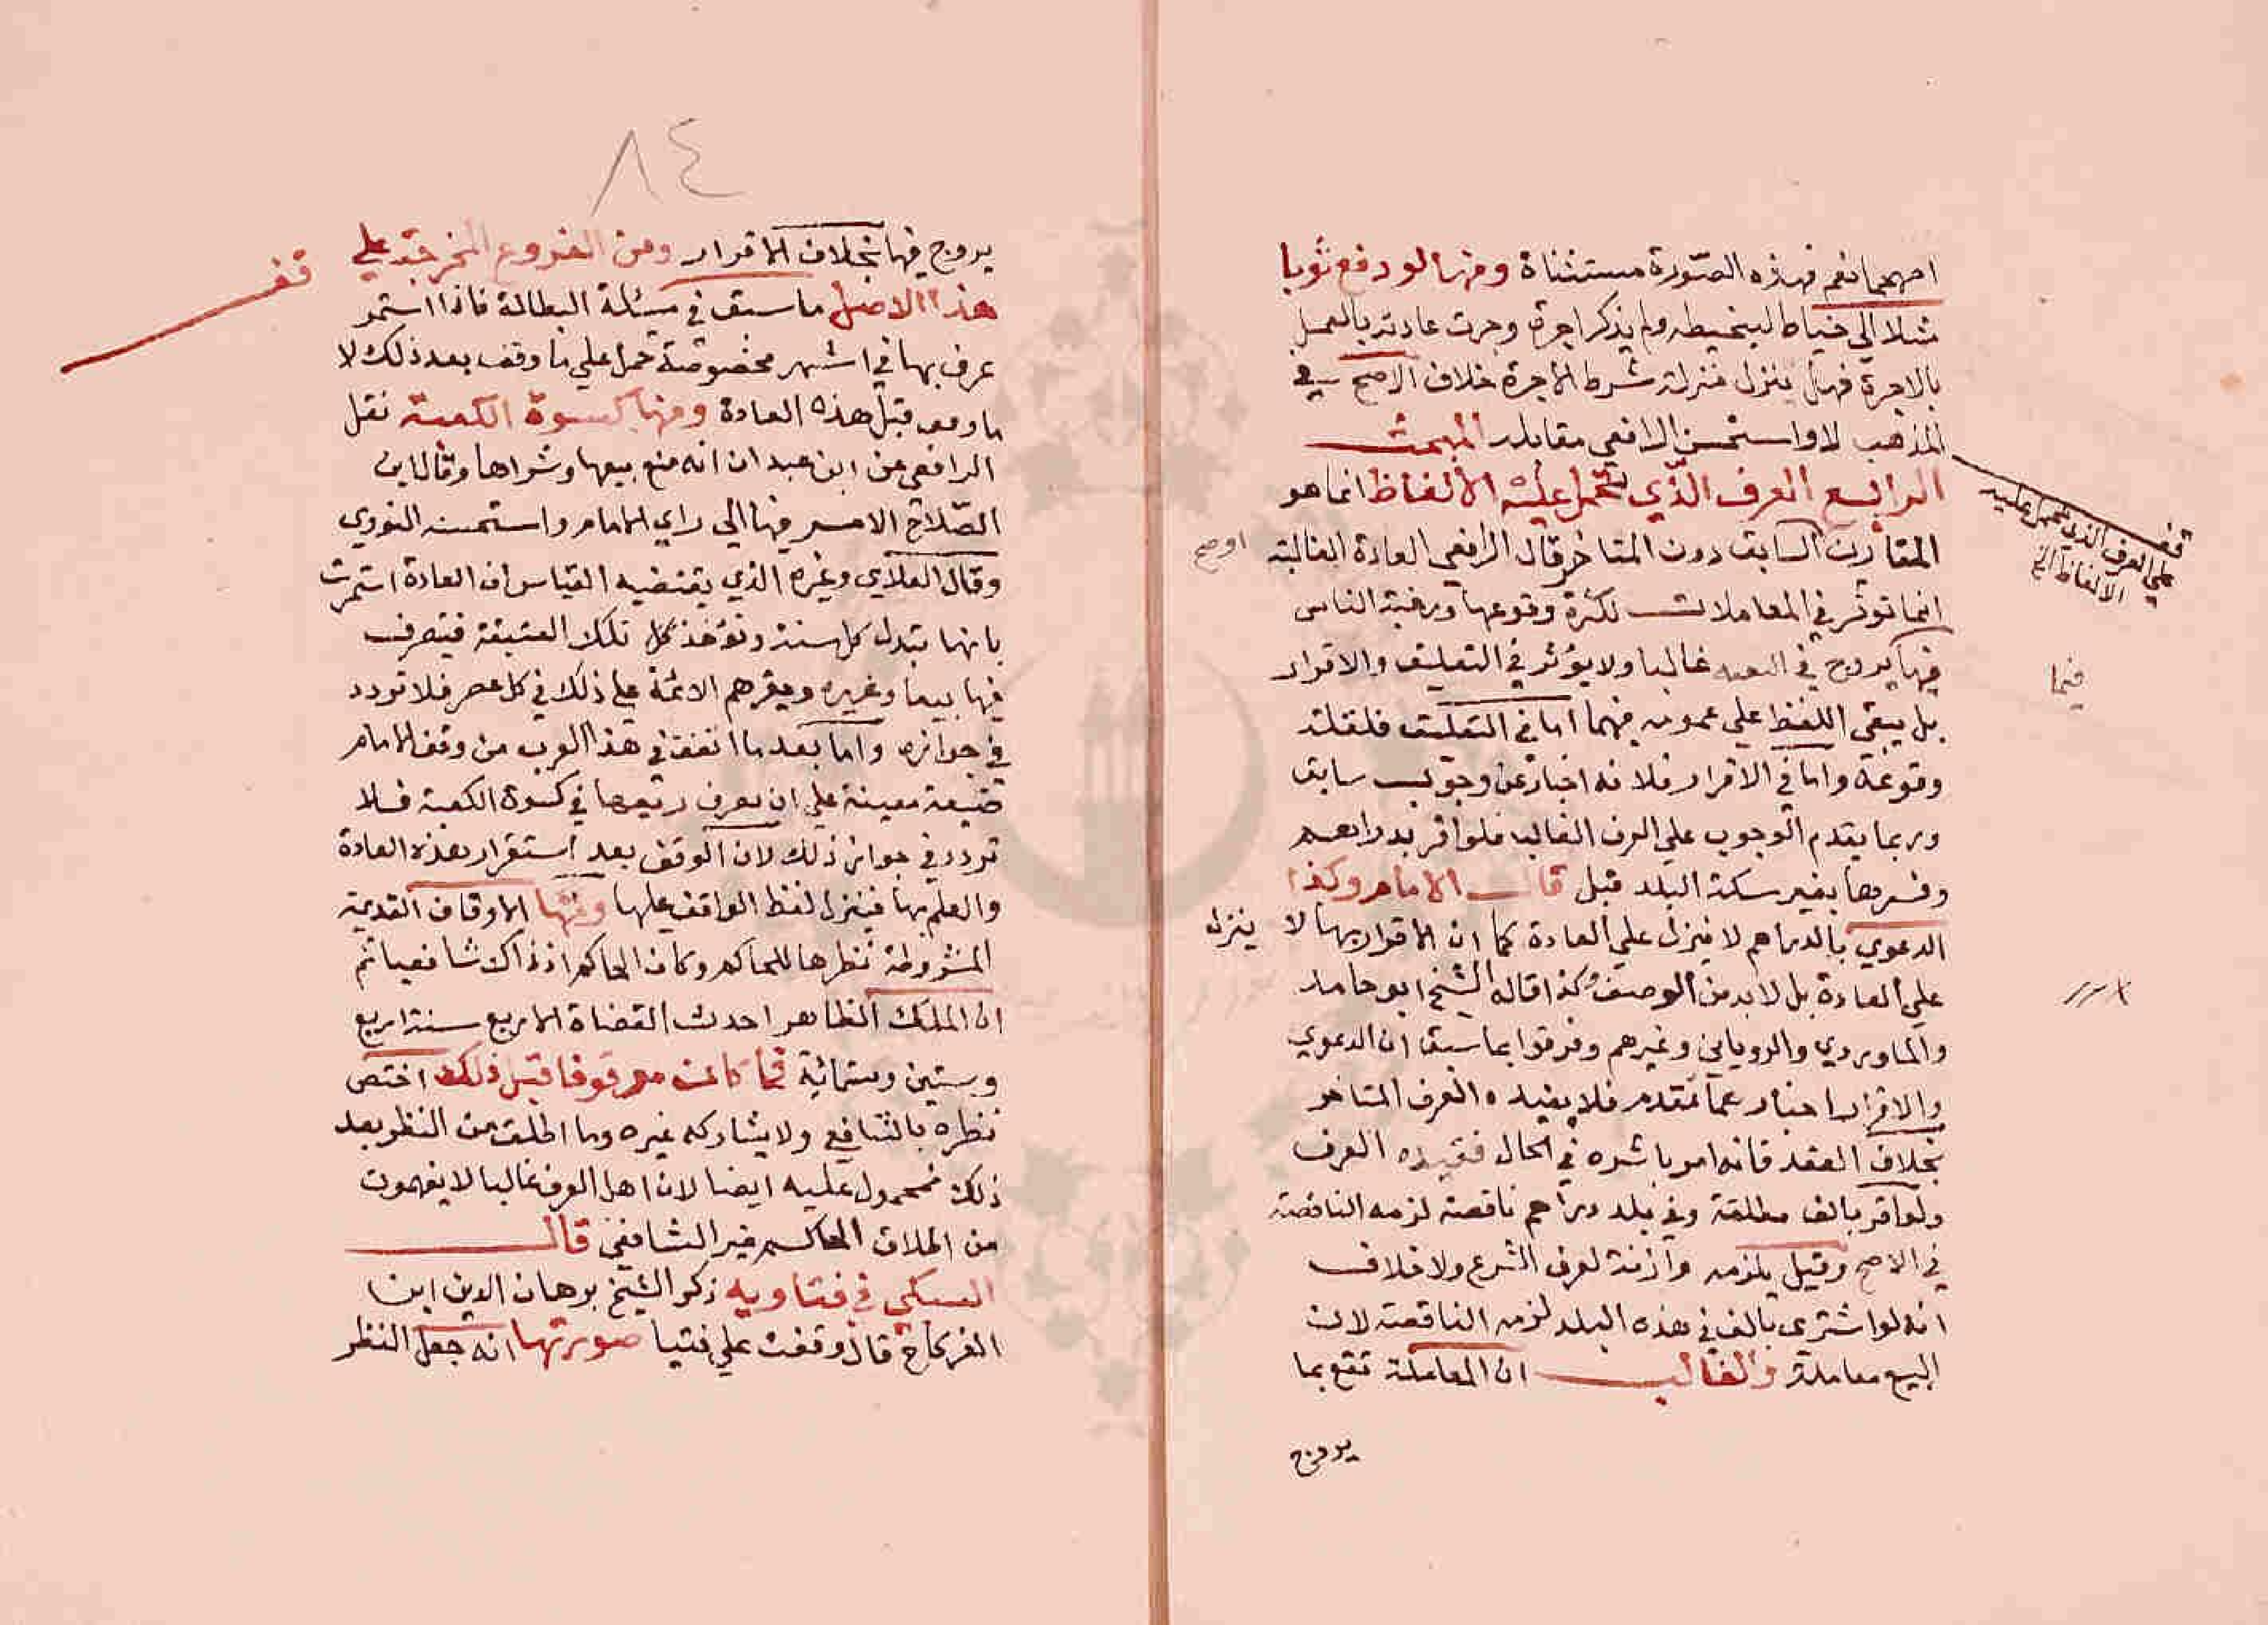 اصحهما نعم فهذه الصورة مستثناة ومنها لو دفع ثوبا
مثلا الي خياط ليخيطه ولم يذكر اجرة وجرت عادته بالعمل
بالاجرة فهل ينزل منزلة شرط الاجرة خلاف الاصح في
المذهب لا واستحسن الرافعي مقابله المبحث
الرابع العرف الذي تحمل عليه الالفاظ انما هو
المقارن السابق دون المتاخر قال الرافعي العادة الغالبة
انما توثر في المعاملات لكثرة وقوعها ورغبة الناس
فيها يروج في البقعة غالبا ولا يؤثر في التعليق والاقرار
بل يبقي اللفظ علي عمومه فيهما اما في التعليق فلقلة
وقوعه واما في الاقرار فلانه اخبار عن وجوب سابق
وربما يقدم الوجوب علي العرف الغالب فلو اقر بدراهم
وفسرها بغير سكة البلد قبل قال الامام وكذا
الدعوي بالدراهم لا ينزل علي العادة كما ان الاقرار بها لا ينزل
علي العادة بل لا بد من الوصف وكذا قاله الشيخ ابو حامد
والماوردي والروياني وغيرهم وفرقوا بما سبق ان الدعوي
والاقرار اخبار عما تقدم فلا يفيده العرف المتاخر
بخلاف العقد فانه امر باشره في الحال فقيده العرف
ولو اقر بالف مطلقة وفي بلد دراهم ناقصة لزمه الناقصة
في الاصح وقيل يلزمه وازنة لعرف الشرع ولا خلاف
انه لو اشتري بالف في هذه البلد لزمه الناقصة لان
البيع معاملة والغالب ان المعاملة تقع بما
يروج
قف
علي العرف الذي تحمل عليه
الالفاظ الخ
فيما
٨٤
يروج فيها بخلاف الاقرار ومن الفروع المخرجة علي
هذا الاصل ما سبق في مسئلة البطالة فاذا استمر
عرف بها في اشهر مخصوصة حمل علي ما وقف بعد ذلك لا
ما وقف قبل هذه العادة ومنها كسوة الكعبة نقل
الرافعي عن ابن عبدان انه منع بيعها وشراها وقال ابن
الصلاح الامر فيها الي راي الامام واستحسنه النووي
وقال العلاي وغيره الذي يقتضيه القياس ان العادة استمرت
بانها تبدل كل سنة وتؤخذ كل تلك العتيقة فيتصرف
فيها بيعا وغيره ويقرهم الائمة علي ذلك في كل عصر فلا تردد
في جوازه واما بعد ما اتفق في هذا العرف من وقف الامام
ضيعة معينة علي ان يصرف ريعها في كسوة الكعبة فلا
تردد في جواز ذلك لان الوقف بعد استقرار هذه العادة
والعلم بها فينزل لفظ الواقف عليها ومنها الاوقاف القديمة
المشروطة نظرها للحاكم وكان الحاكم اذ ذاك شافعيا ثم
ان الملك الظاهر احدث القضاة الاربع سنة اربع
وستين وستمائة فما كانت موقوفا قبل ذلك اختص
نظره بالشافعي ولا يشاركه غيره وما اطلق من النظر بعد
ذلك فمحمول عليه ايضا لان اهل العرف غالبا لا يفهمون
من اطلاق الحاكم غير الشافعي قال
السبكي في فتاويه ذكر الشيخ برهان الدين ابن
الفركاح قال وقفت علي فتيا صورتها انه جعل النظر
قف